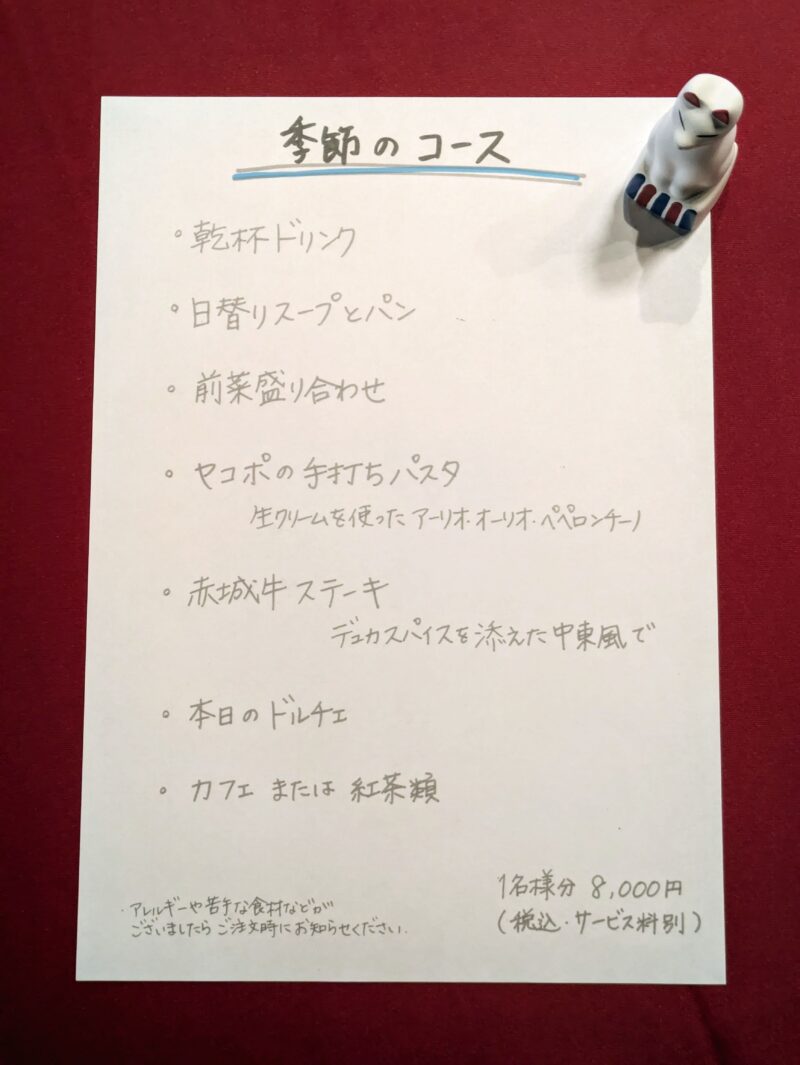 季節のコース
・乾杯ドリンク
・日替りスープとパン
・前菜盛り合わせ
・ヤコポの手打ちパスタ
生クリームを使ったアーリオ・オーリオ・ペペロンチーノ
・赤城牛ステーキ
デュカスパイスを添えた中東風で
・本日のドルチェ
・カフェ または 紅茶類
・アレルギーや苦手な食材などが
ございましたら ご注文時にお知らせください.
1名様分 8,000円
(税込・サービス料別)